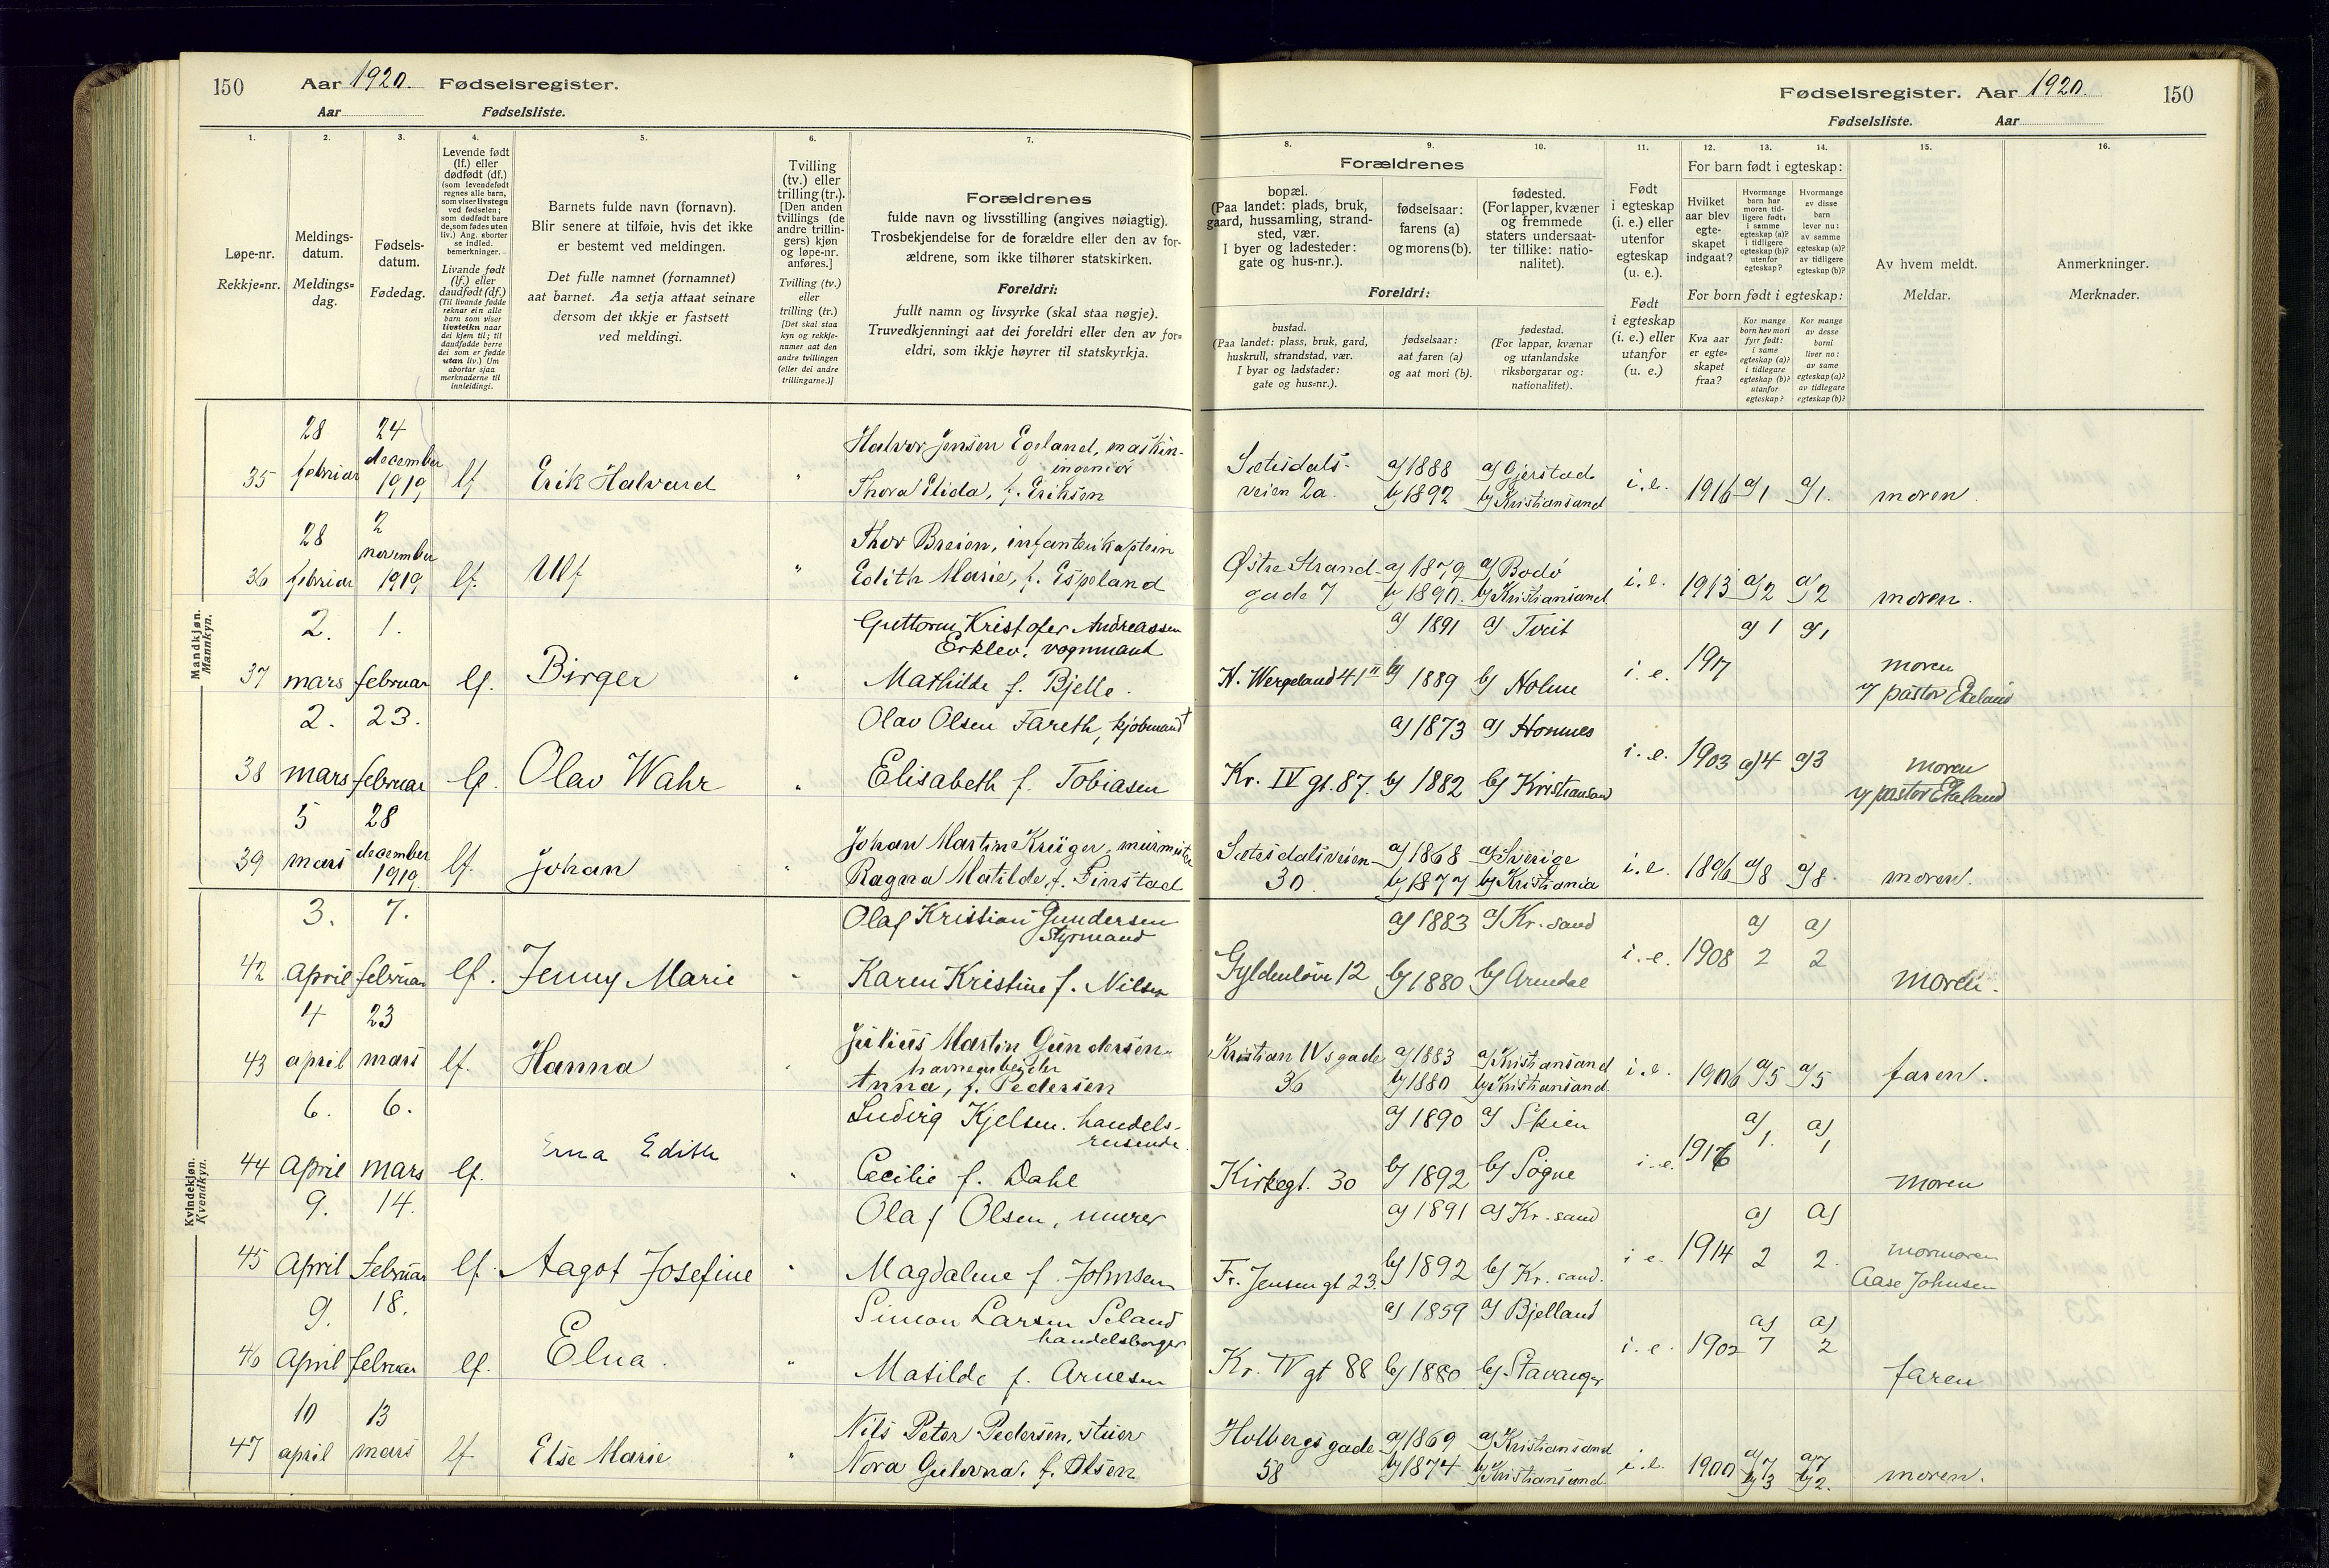 150 Aar 1920. Fødselsregister.
Aar Fødselsliste.
Fødselsregister. Aar 1920. 150
Fødselsliste. Aar
1. 2. 3. 4. 5. 6. 7.
Løpe-nr.
Rekkje-nr.
Meldings-
datum.
Meldings-
dag.
Fødsels-
datum.
Fødedag.
Levende født
(lf.) eller
dødfødt (df.)
(som levendefødt
regnes alle barn,
som viser livstegn
ved fødselen;
som dødfødt bare
de, som fødes uten
liv.) Ang. aborter
se indled.
bemerkninger.
Livande født
(lf.) eller
daudfødt (df.)
(Til livande fødde
reknar ein alle
barn som viser
livsteikn naar
dei kjem til; til
daudfødde berre
dei som er fødde
utan liv.) Um
abortar sjaa
merknaderne til
innleidingi.
Barnets fulde navn (fornavn).
Blir senere at tilføie, hvis det ikke
er bestemt ved meldingen.
Det fulle namnet (fornamnet)
aat barnet. Aa setja attaat seinare
dersom det ikkje er fastsett
ved meldingi.
Tvilling
(tv.) eller
trilling (tr.).
[Den anden
tvillings (de
andre trillin-
gers) kjøn
og løpe-nr.
anføres.]
Tvilling (tv.)
eller
trilling (tr.)
[Det skal staa
kyn og rekkje-
numer aat den
andre tvillingen
(eller dei andre
trillingarne.)]
Forældrenes
fulde navn og livsstilling (angives nøiagtig).
Trosbekjendelse for de forældre eller den av for-
ældrene, som ikke tilhører statskirken.
Foreldri:
fullt namn og livsyrke (skal staa nøgje).
Truvedkjenningi aat dei foreldri eller den av for-
eldri, som ikkje høyrer til statskyrkja.
8. 9. 10. 11. 12. 13. 14. 15. 16.
Forældrenes
bopæl.
(Paa landet: plads, bruk,
gaard, hussamling, strand-
sted, vær.
I byer og ladesteder:
gate og hus-nr.).
fødselsaar:
farens (a)
og morens (b).
fødested.
(For lapper, kvæner
og fremmede
staters undersaat-
ter tillike: natio-
nalitet).
Foreldri:
bustad.
(Paa landet: plass, bruk, gard,
huskrull, strandstad, vær.
I byar og ladstader:
gate og hus-nr.).
fødselsaar:
aat faren (a)
og aat mori (b).
fødestad.
(For lappar, kvænar
og utanlandske
riksborgarar og:
nationalitet).
Født
i egteskap
(i. e.) eller
utenfor
egteskap
(u. e.).
Født
i egteskap
(i. e.) eller
utanfor
(u. e.)
For barn født i egteskap:
Hvilket
aar blev
egte-
skapet
indgaat?
Hvormange
barn har
moren tid-
ligere født:
i samme
egteskap (a)?
i tidligere
egteskap (b)?
utenfor
egteskap?
Hvormange
av disse
barn
lever nu:
av samme
egteskap (a)?
av tidligere
egteskap (b)?
For born født i egteskap:
Kva aar
er egte-
skapet
fraa?
Kor mange
born hev mori
fyrr født:
i same
egteskap (a)?
i tidlegare
egteskap (b)?
utanfor
egteskap?
Kor mange
av desse
borni
liver no:
av same
egteskap (a)?
av tidlegare
egteskap (b)?
Av hvem meldt.
Meldar.
Anmerkninger.
Merknader.
Mandkjøn.
Mannkyn.
35 28 februar 24 december 1919 lf Erik Halvard " Halvor Jensen Egeland, maskin-
ingeniør
Thora Elida, f. Eriksen
Sætesdals-
veien 2a. a) 1888 b) 1892 a) Gjerstad b) Kristiansand i.e. 1916 a) 1 a) 1. moren.
36 28 februar 2 november 1919 lf. Ulf " Thor Breien, infanterikaptein
Edith Marie, f. Espeland
Østre Strand-
gade 7 a) 1879 b) 1890. a) Bodø b) Kristiansand i.e. 1913 a) 2 a) 2 moren.
37 2. mars 1. februar lf. Birger " Guttorm Kristofer Andreassen
Erklev. vognmand
Mathilde f. Bjelle.
H. Wergeland 41 II a) 1891 b) 1889 a) Tveit b) Holme i. e. 1917 a) 1 a) 1 moren
v/ pastor Ekeland
38 2. mars 23. februar lf. Olav Wahr " Olav Olsen Fareth, kjøbmand
Elisabeth f. Tobiasen
Kr. IV gt. 87. a) 1873 b) 1882 a) Hommes b) Kristiansand i. e. 1903 a) 4 a) 3 moren
v/ pastor Ekeland
39 5 mars 28 december 1919 lf. Johan " Johan Martin Krüger, murmester
Ragna Matilde, f. Finstad
Sætesdalsveien
30. a) 1868 b) 1877 a) Sverige b) Kristiania i.e. 1896 a) 8 a) 8. moren.
Kvindekjøn.
Kvendkyn.
42 3. April 7. februar lf. Jenny Marie " Olaf Kristian Gundersen
Styrmand
Karen Kristine f. Nilsen
Gyldenløve 12 a) 1883 b) 1880 a) Kr. sand b) Arendal i. e. 1908 a) 2 a) 2 moren.
43 4 april 23 mars lf. Hanna " Julius Martin Gundersen
havnearbeider
Anna, f. Pedersen
Kristian IVs gade
36 a) 1883 b) 1880 a) Kristiansand b) Kristiansand i.e. 1906 a) 5 a) 5 faren.
44 6. April 6. mars lf. Erna Edith " Ludvig Kjelsen. handels-
reisende
Cecilie f. Dahl
Kirkegt. 30 a) 1890 b) 1892 a) Skien b) Søgne i. e. 1916 a) 1. a) 1 moren
45 9. April 14. februar lf. Aagot Josefine " Olaf Olsen, murer
Magdalene f. Johnsen
Fr. Jensens gt 23. a) 1891 b) 1892 a) Kr. sand b) Kr. sand. i e. 1914 a) 2 a) 2. mormoren
Aase Johnsen
46 9. April 18. februar lf. Elna. " Simon Larsen Seland
handelsborger
Matilde f. Arnesen
Kr. IV gt 88 a) 1859 b) 1880 a) Bjelland b) Stavanger i. e. 1902 a) 7 a) 2 faren
47 10 april 13 mars lf Else Marie " Nils Peter Pedersen, stuer
Nora Gulovna. f. Olsen
Holbergs gade
58 a) 1869 b) 1874 a) Kristiansand b) Kristiansand i.e. 1900 a) 7 b) 3 a) 7 b) 2. moren.